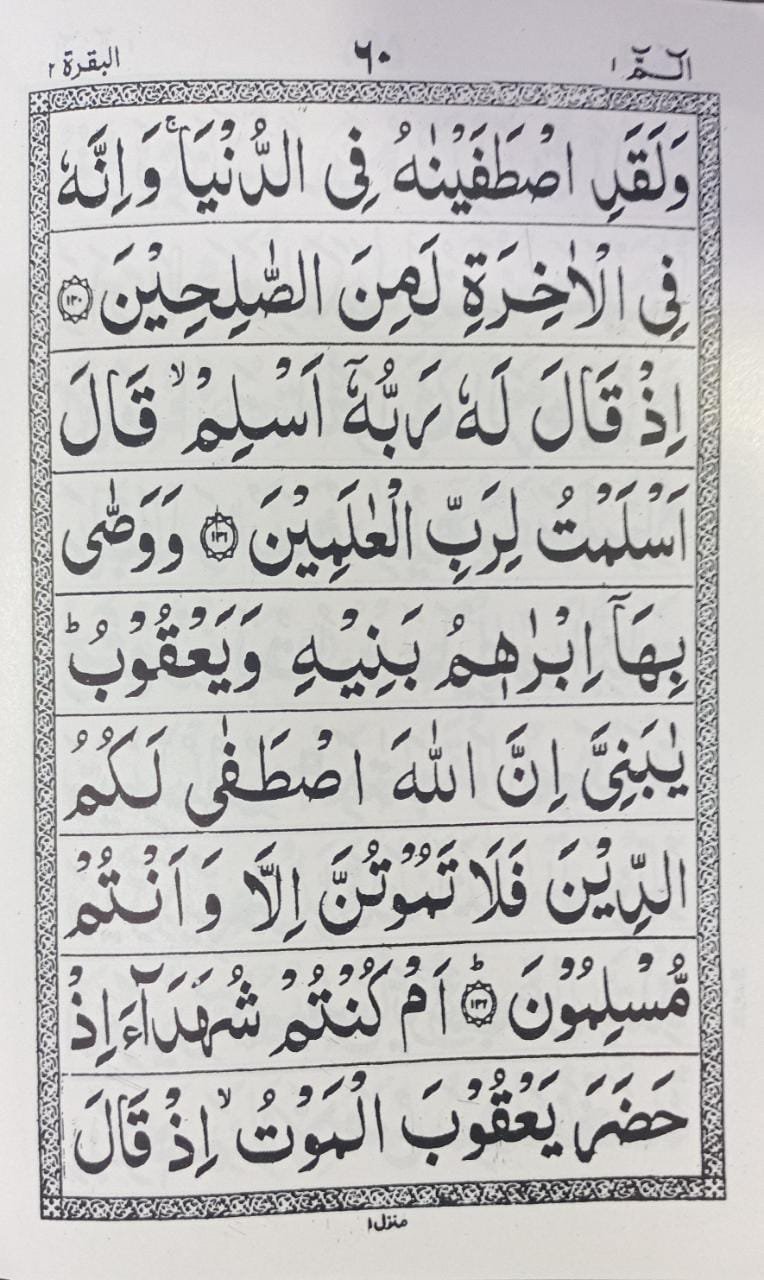 الٓمّٓ ۱ ٦٠ البقرة ۲
وَلَقَدِ اصْطَفَيْنٰهُ فِى الدُّنْيَا ۚ وَاِنَّهٗ
فِى الْاٰخِرَةِ لَمِنَ الصّٰلِحِيْنَ ﴿۱۳۰﴾
اِذْ قَالَ لَهٗ رَبُّهٗۤ اَسْلِمْ ۙ قَالَ
اَسْلَمْتُ لِرَبِّ الْعٰلَمِيْنَ ﴿۱۳۱﴾ وَوَصّٰى
بِهَاۤ اِبْرٰهٖمُ بَنِيْهِ وَيَعْقُوْبُ ؕ
يٰبَنِىَّ اِنَّ اللّٰهَ اصْطَفٰى لَكُمُ
الدِّيْنَ فَلَا تَمُوْتُنَّ اِلَّا وَاَنْتُمْ
مُّسْلِمُوْنَ ؕ﴿۱۳۲﴾ اَمْ كُنْتُمْ شُهَدَآءَ اِذْ
حَضَرَ يَعْقُوْبَ الْمَوْتُ ۙ اِذْ قَالَ
منزل ۱